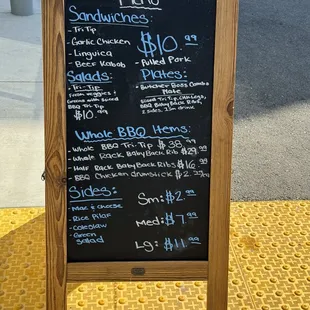 Menu
Sandwiches:
- Tri-Tip
- Garlic Chicken
- Linguica
- Beef Kabob
- Pulled Pork
$10.99
Salads:
- Tri-Tip
Fresh veggies &
Greens with Sliced
BBQ Tri-Tip
$10.99
Plates:
- Butcher Boss Combo
Plate
Sliced Tri-Tip,
BBQ Baby Back Ribs,
2 sides,
Whole BBQ Items:
- Whole BBQ Tri-Tip $38.99
- Whole Rack Baby Back Rib $29.99
- Half Rack Baby Back Ribs $16.99
- BBQ Chicken drumstick $2.99
Sides:
- Mac & Cheese
- Rice Pilaf
- Coleslaw
- Green
Salad
Sm: $2.99
Med: $7.99
Lg: $11.99